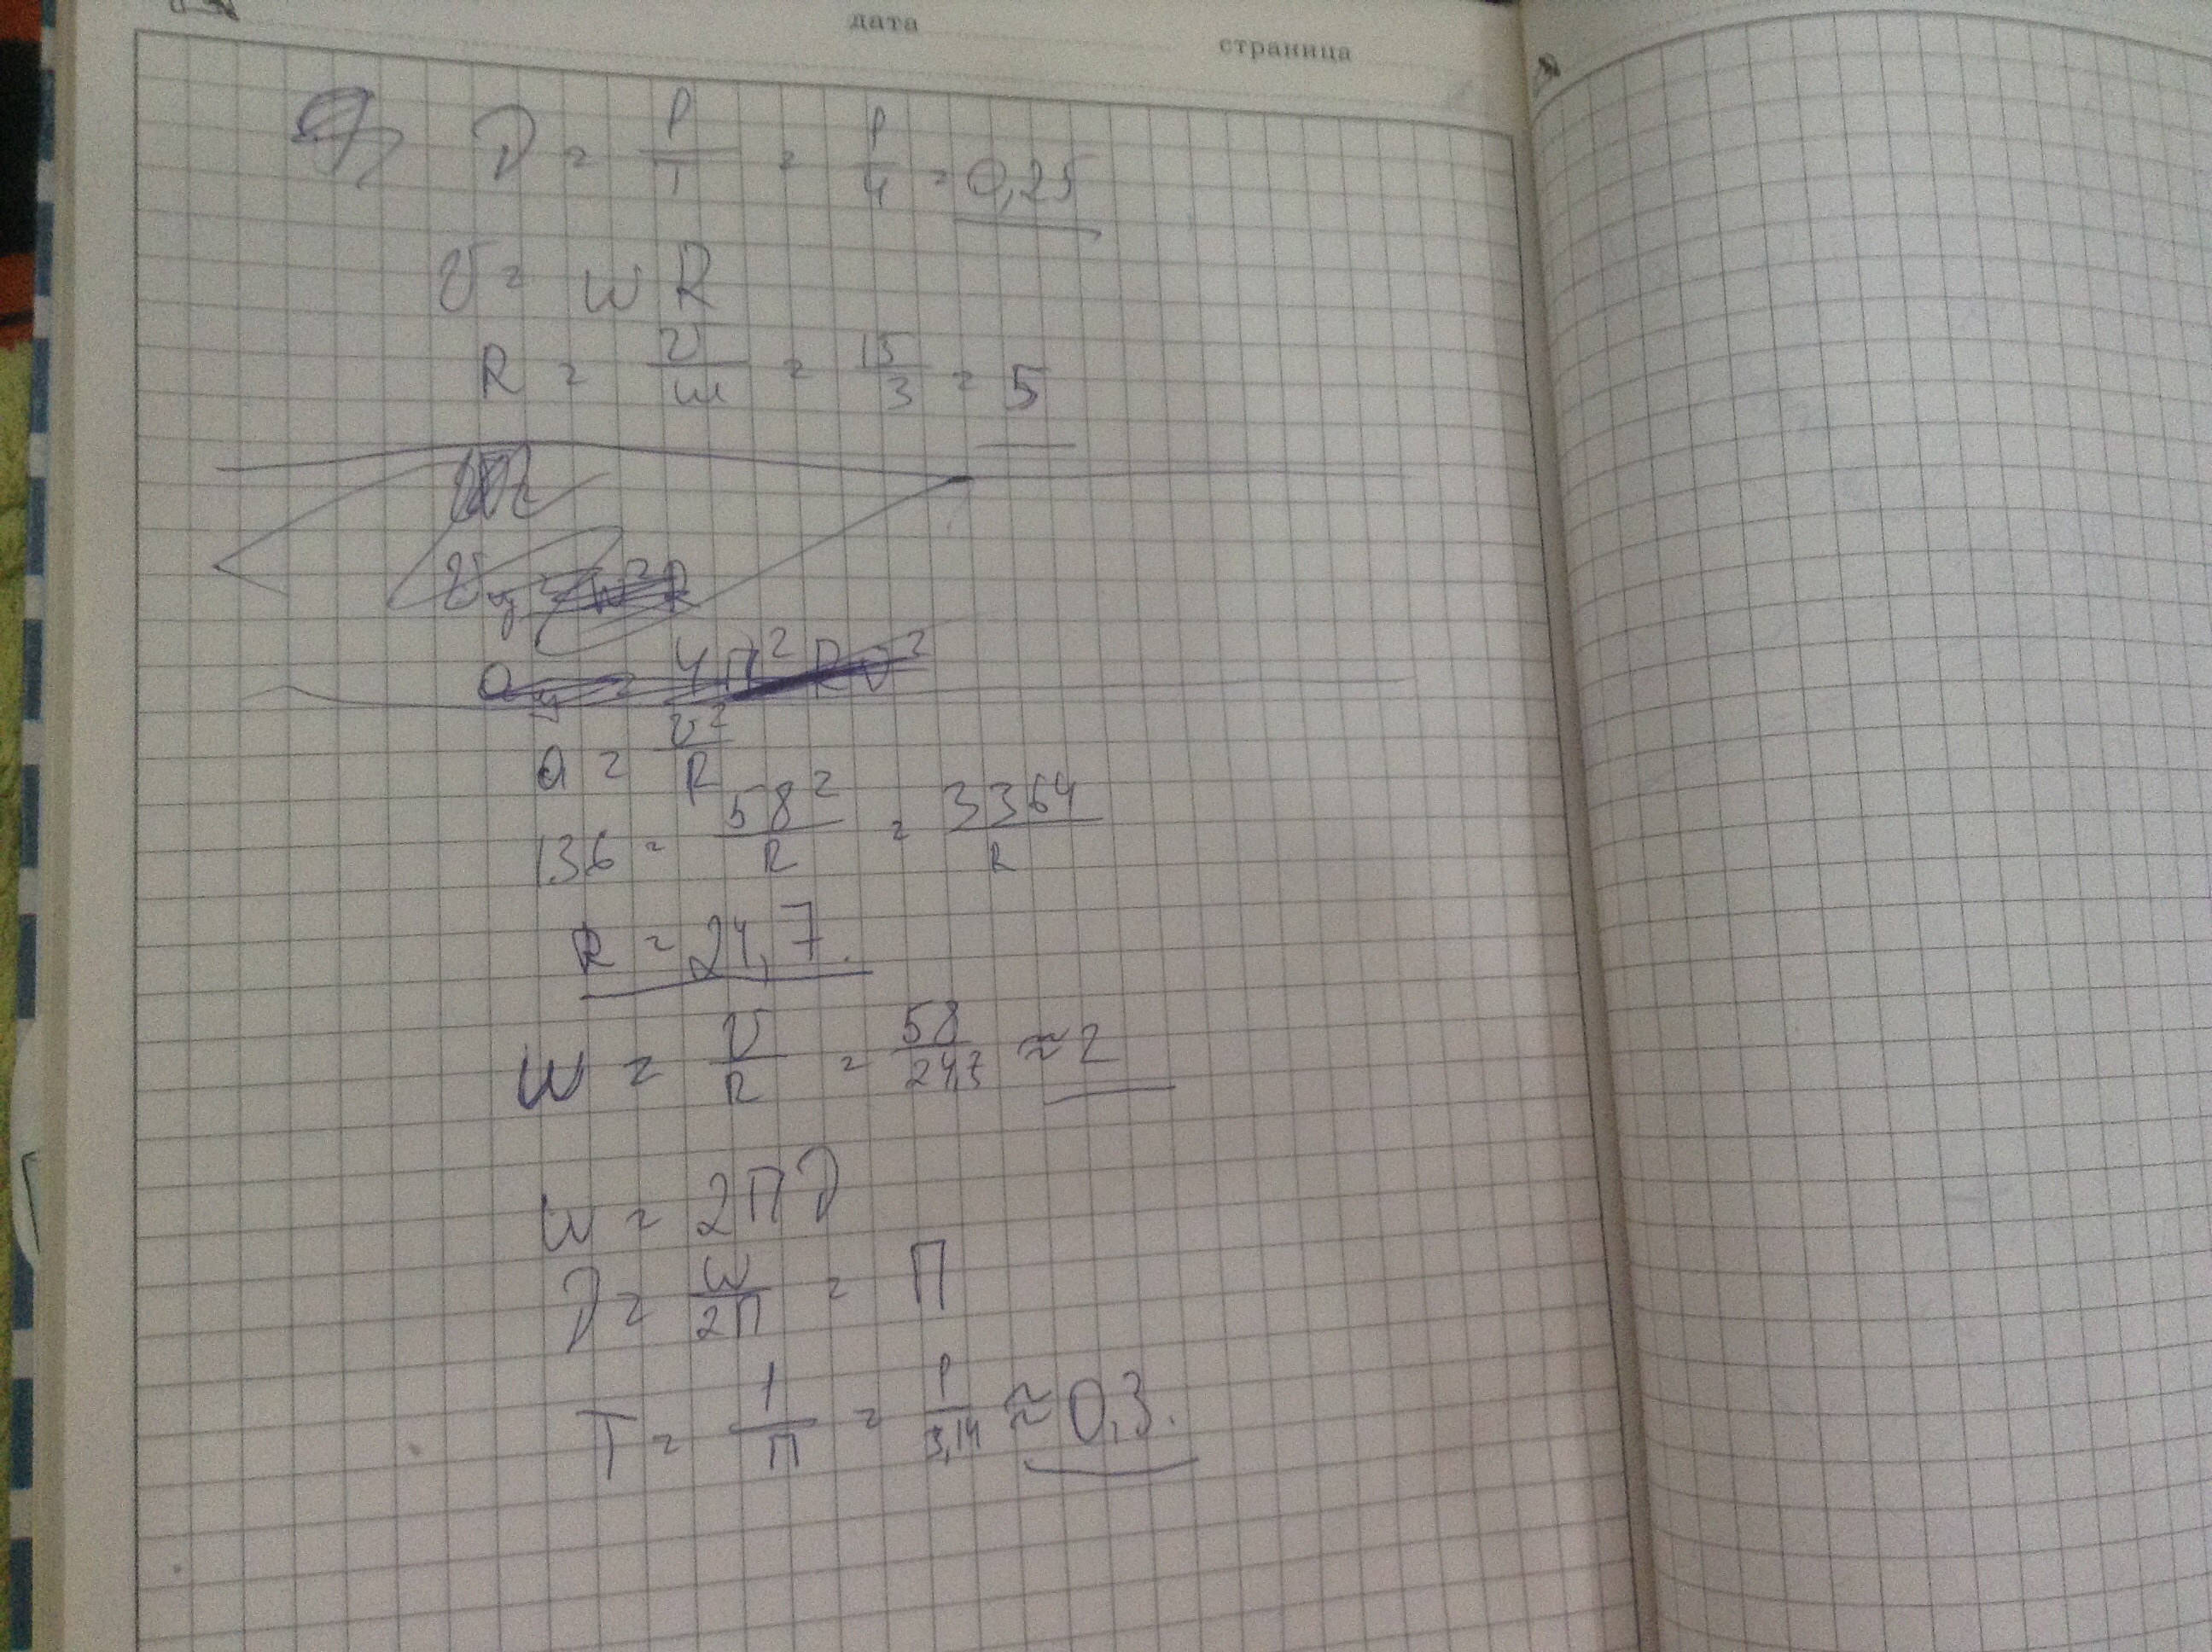 дата
страница
ν = 1/T = 1/4 = 0,25
v = wR
R = v/w = 15/3 = 5
a = v²/R
136 = 58²/R = 3364/R
R = 24,7.
w = v/R = 58/24,7 ≈ 2
w = 2πν
ν = w/2π = π
T = 1/π = 1/3,14 ≈ 0,3.